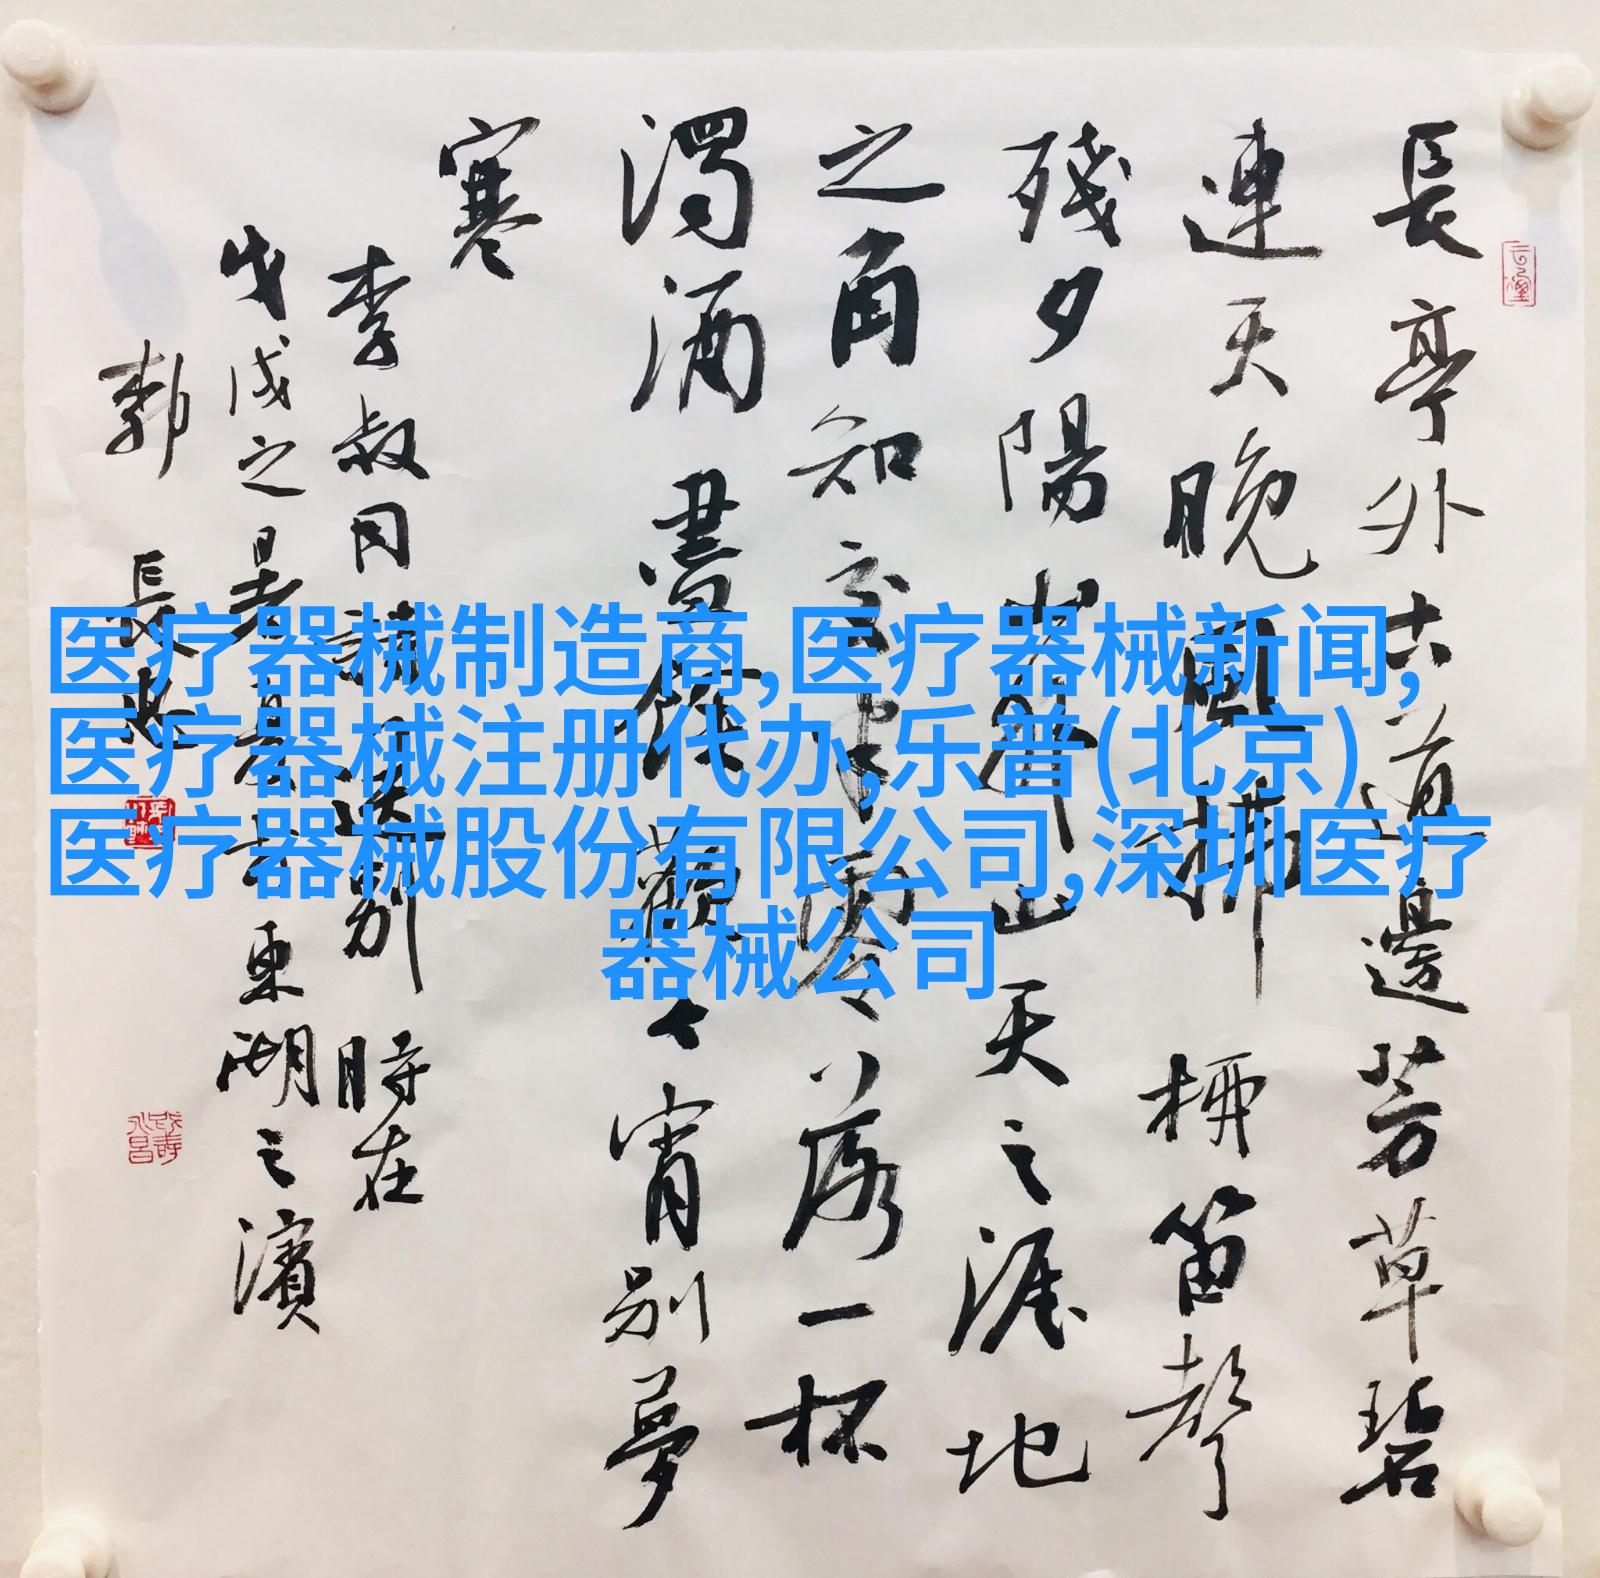 長亭外古道邊芳草碧
連天晚風拂柳笛聲
殘夕陽山外山天之涯地
之角知交半零落一杯
濁酒盡餘歡今宵別夢
寒
李叔同詩送別 時在
戊戌之暑東湖之濱
長
医疗器械制造商,医疗器械新闻,
医疗器械注册代办,乐普(北京)
医疗器械股份有限公司,深圳医疗
器械公司